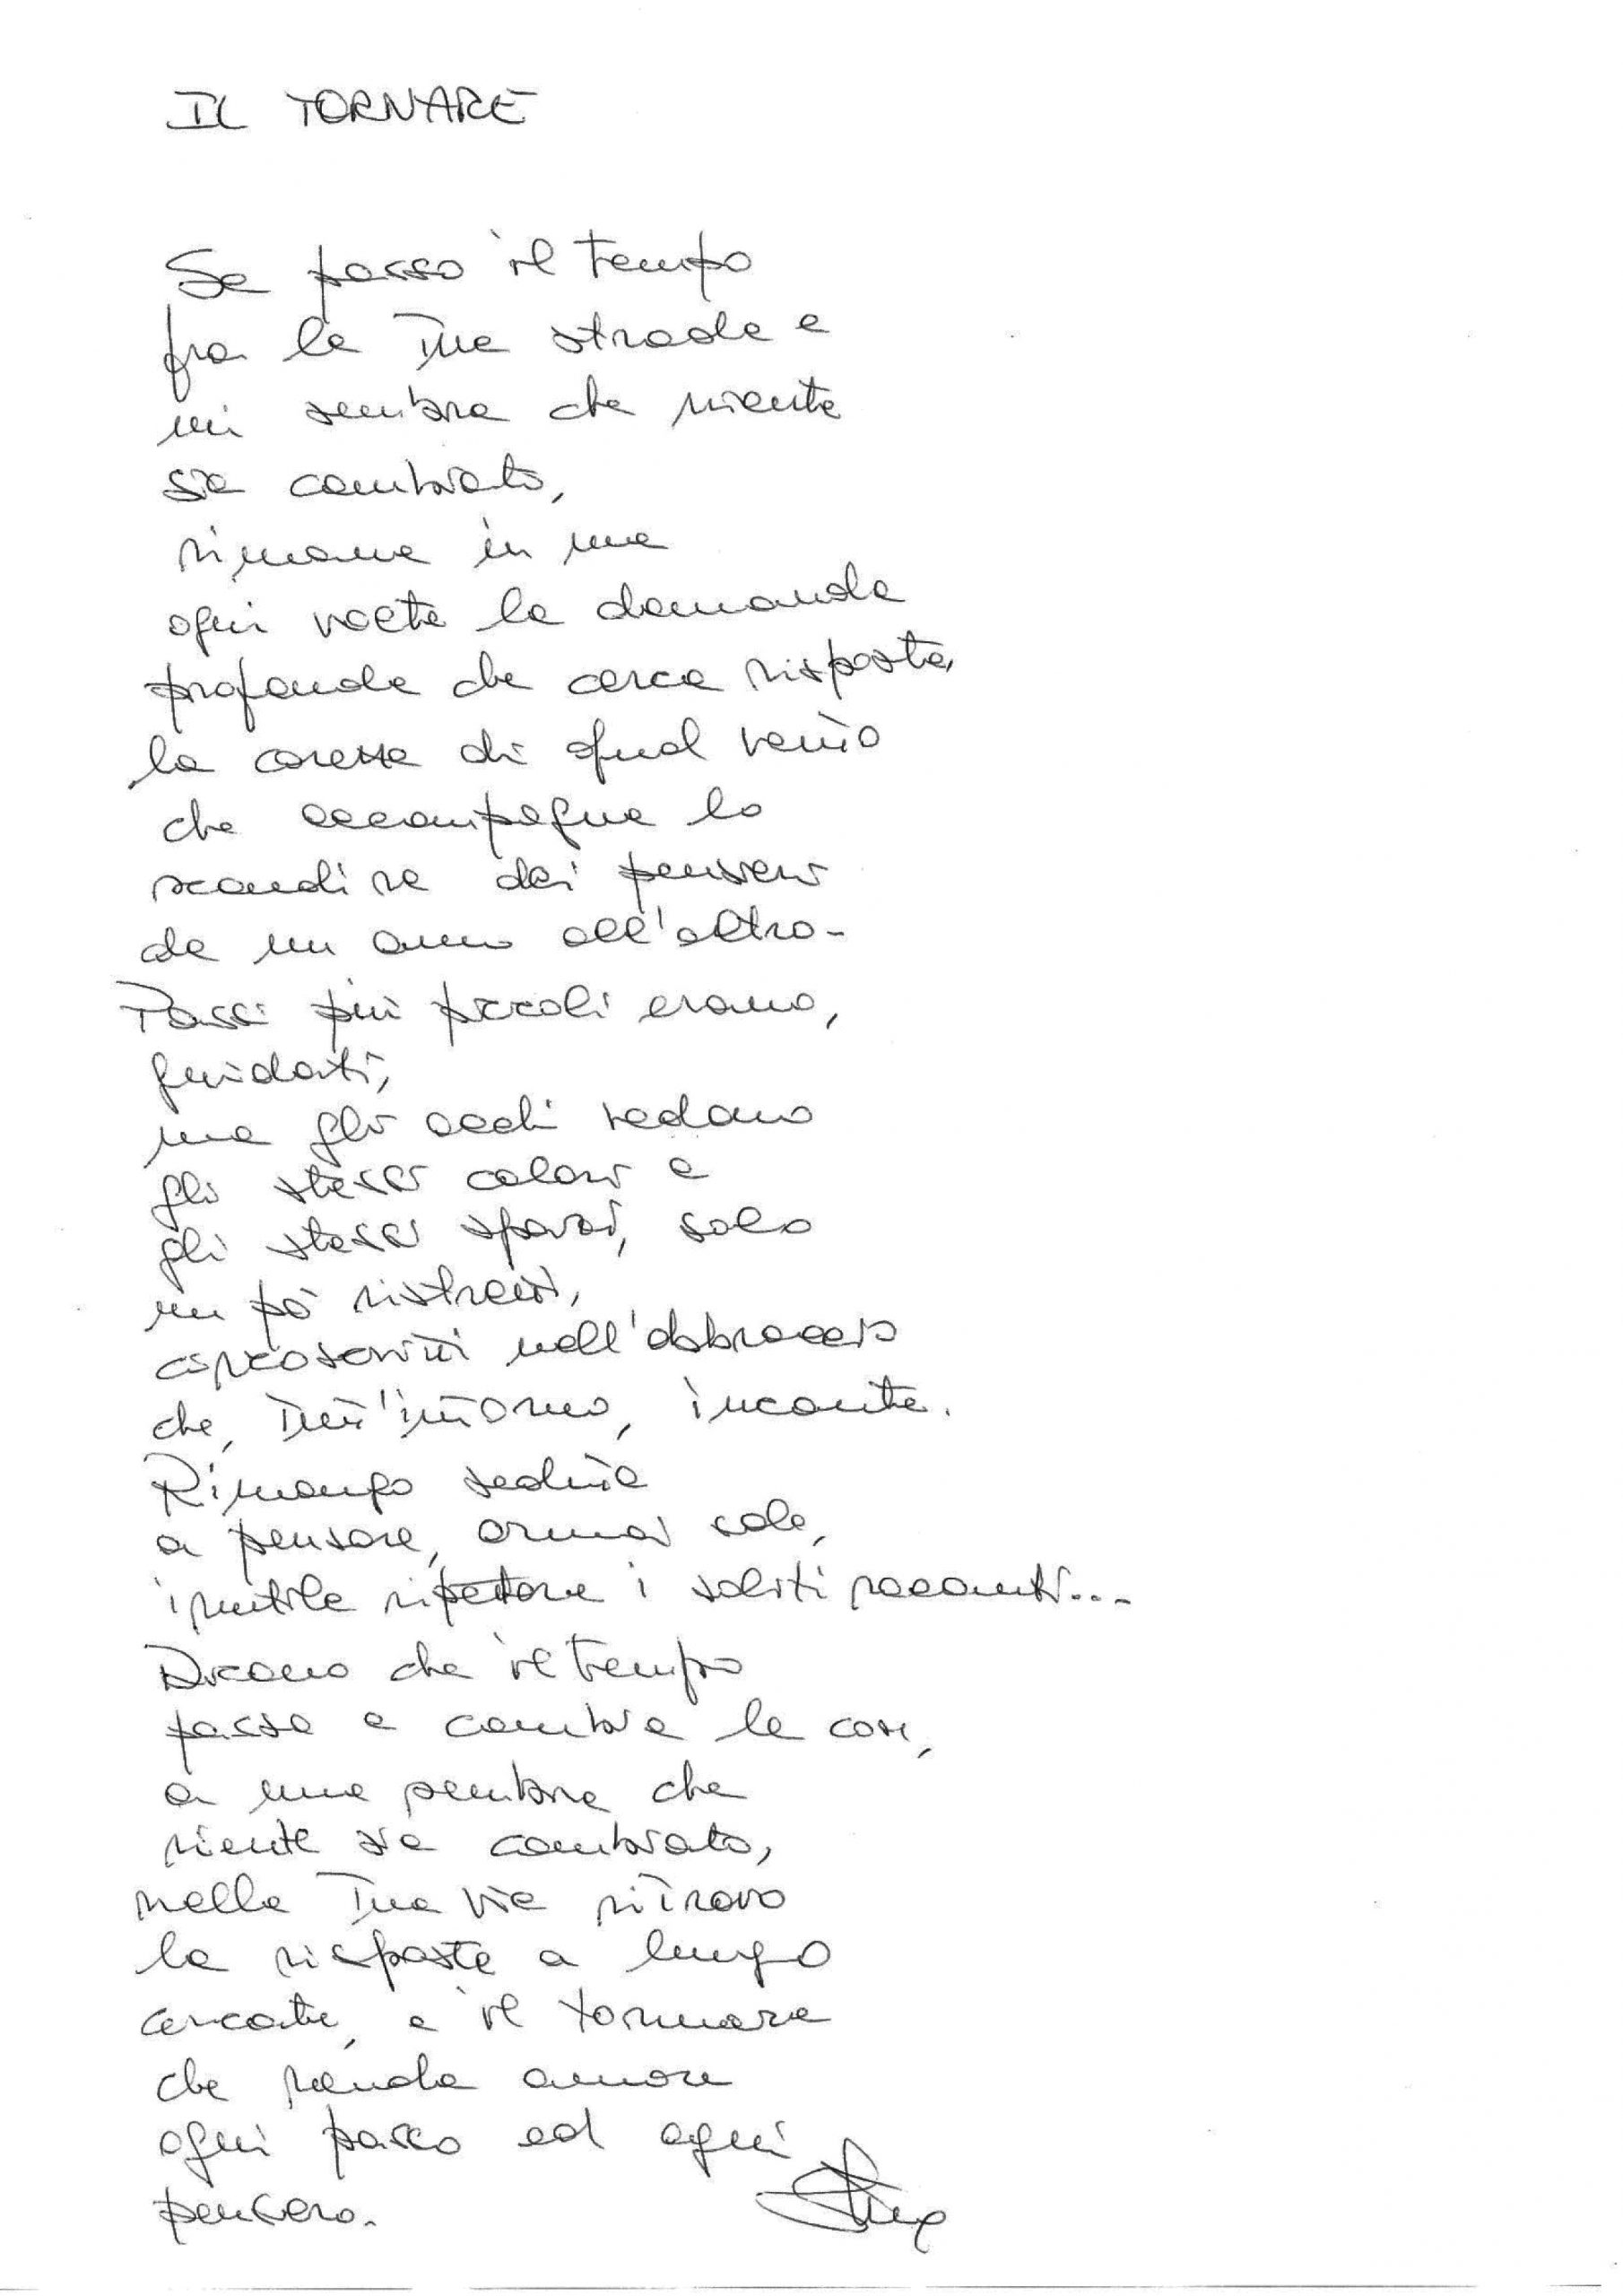 IL TORNARE
Se passo il tempo
fra le Tue strade e
mi sembra che niente
sia cambiato,
rimane in me
ogni volta la domanda
profonda che cerca risposta,
la carezza di quel vento
che accompagna lo
scandire dei pensieri
da un anno all'altro.
Passi più piccoli erano,
guidati,
ma gli occhi vedono
gli stessi colori e
gli stessi spazi, solo
un pò ristretti,
circoscritti nell'abbraccio
che, tutt'intorno, incanta.
Rimango seduta
a pensare, ormai sola,
inutile ripetere i soliti racconti...
Dicono che il tempo
passa e cambia le cose,
a me sembra che
niente sia cambiato,
nella Tua via ritrovo
la risposta a lungo
cercata, e il tornare
che rende amore
ogni passo ed ogni
pensiero.